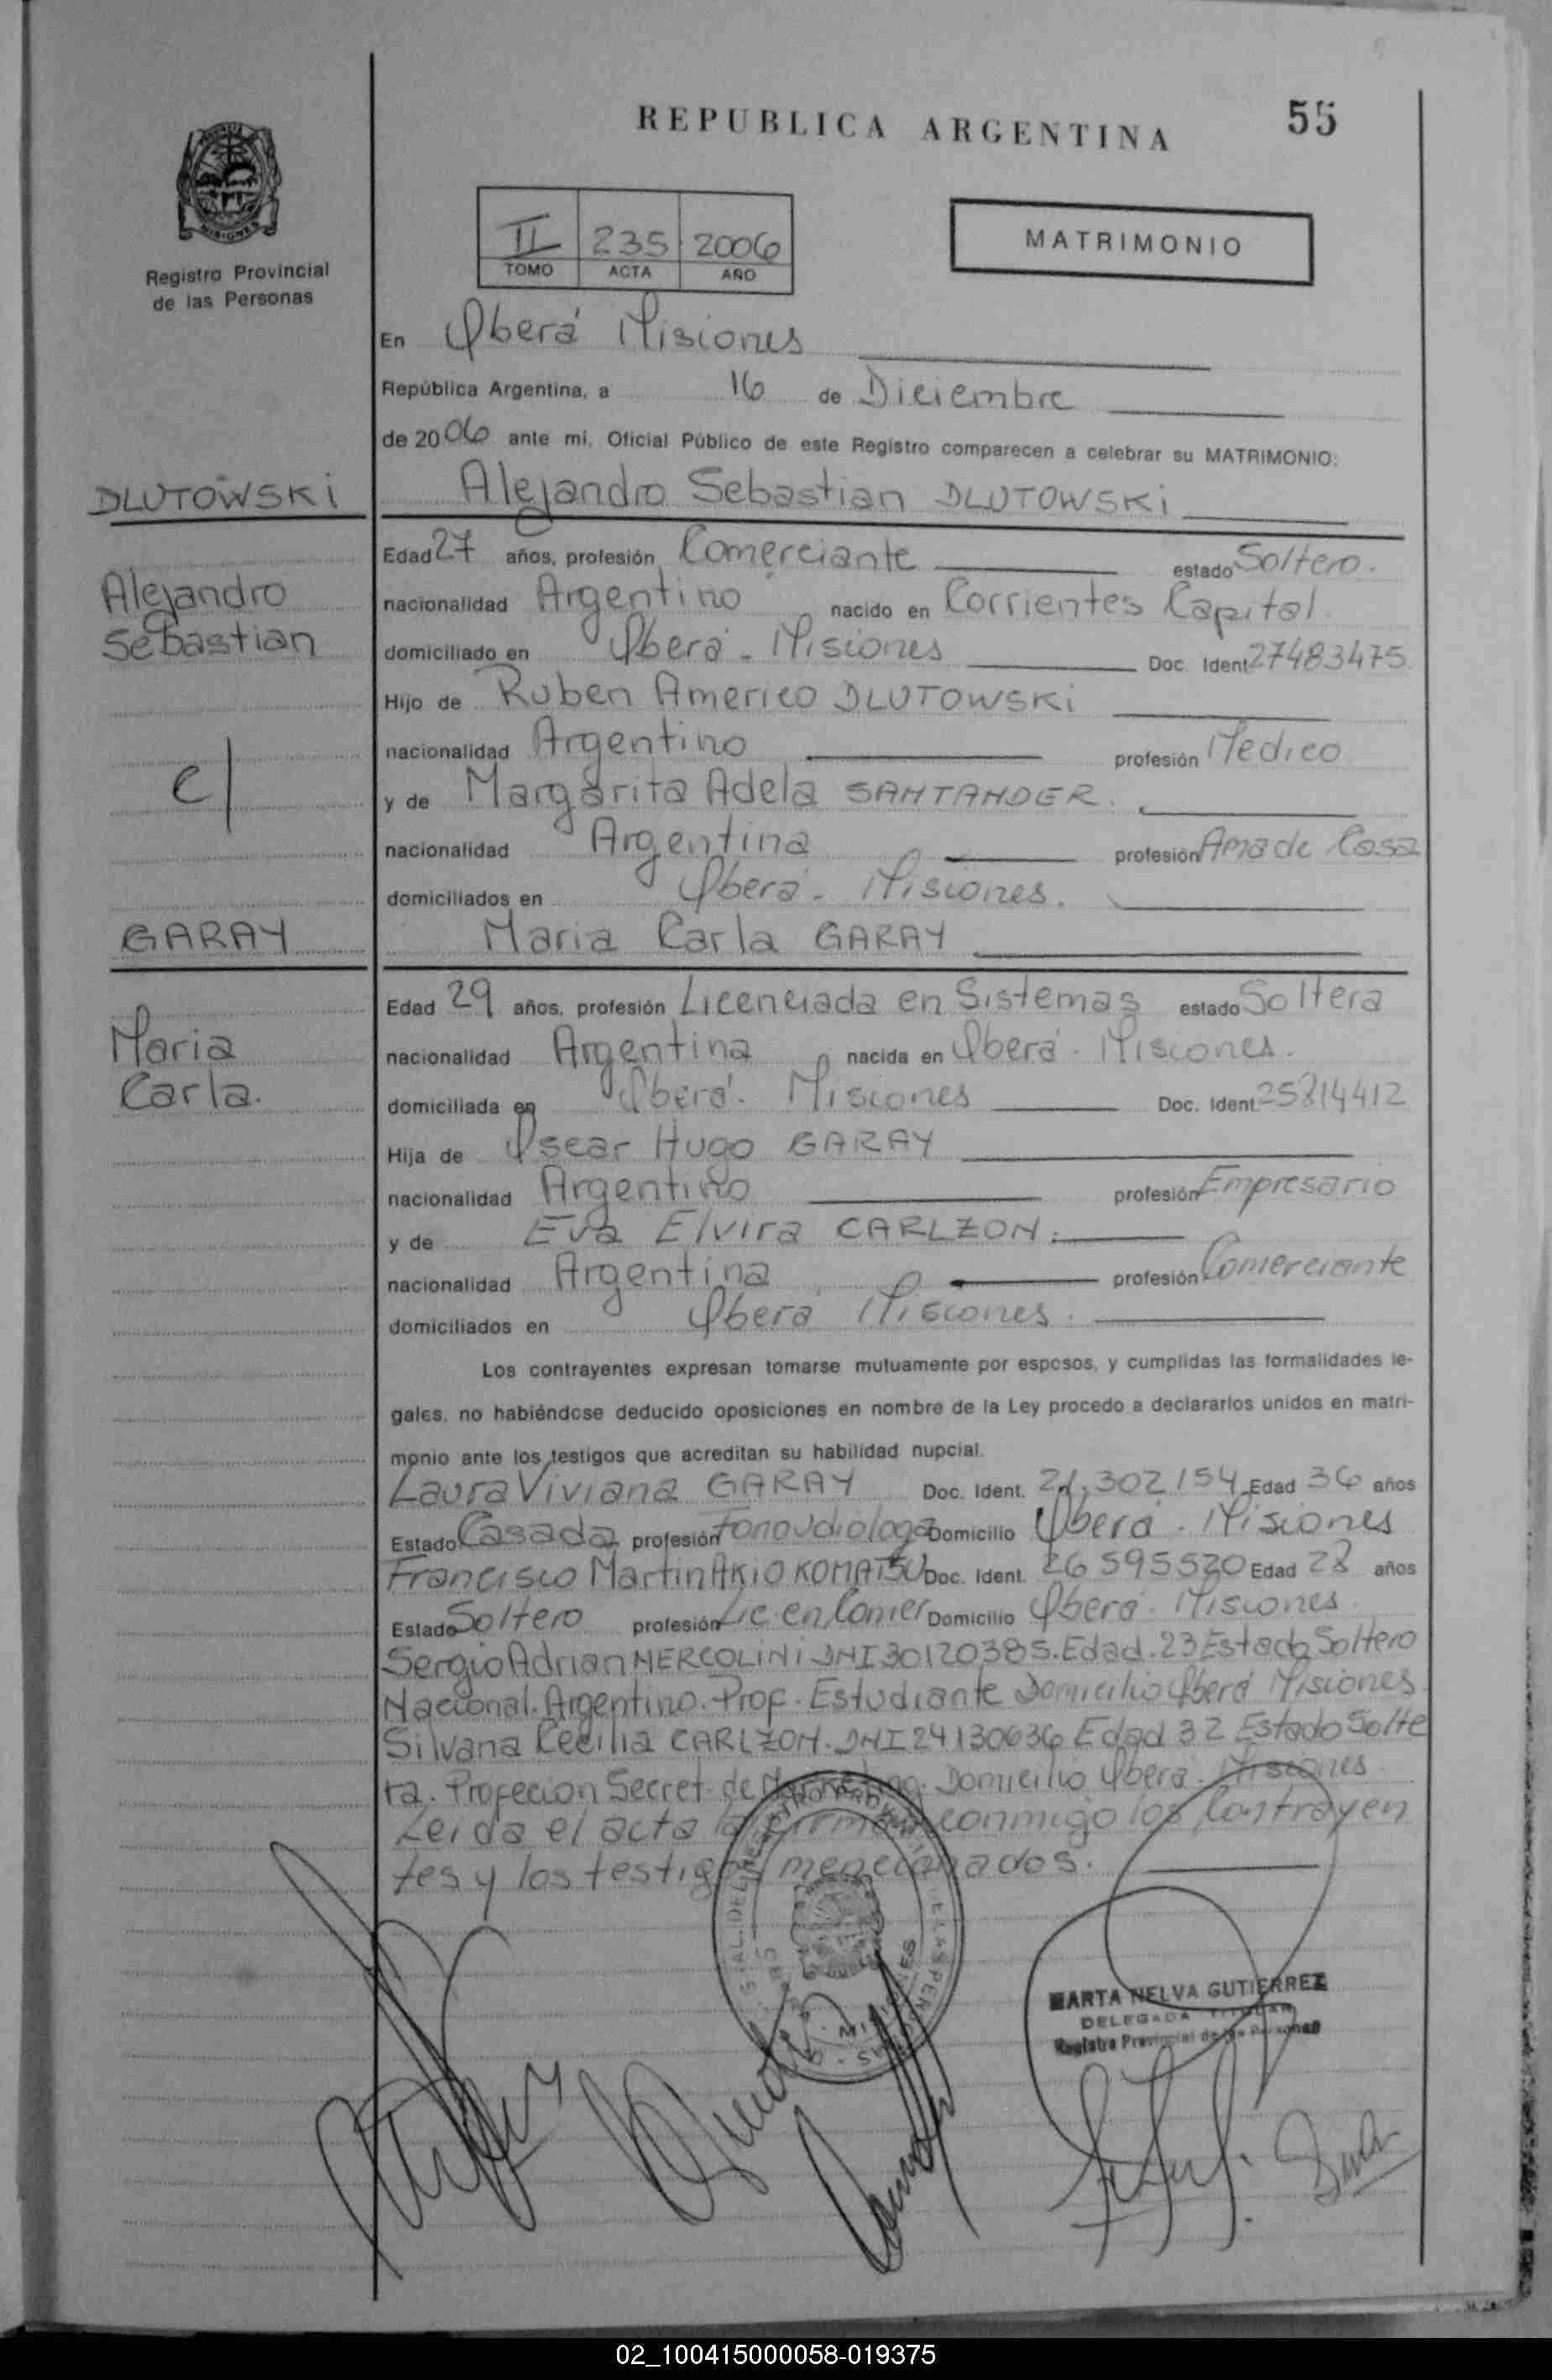 REPUBLICA ARGENTINA
55
Registro Provincial
de las Personas
II 235 2006
TOMO ACTA AÑO
MATRIMONIO
En Oberá Misiones
República Argentina, a 16 de Diciembre
de 2006 ante mi, Oficial Público de este Registro comparecen a celebrar su MATRIMONIO:
DLUTOWSKi
Alejandro Sebastian DLUTOWSKi
Edad 27 años, profesión Comerciante estado Soltero.
Alejandro
Sebastian
nacionalidad Argentino nacido en Corrientes Capital.
domiciliado en Oberá - Misiones Doc. Ident 27483475
Hijo de Ruben Americo DLUTOWSKi
nacionalidad Argentino profesión Medico
c/
y de Margarita Adela SANTANDER.
nacionalidad Argentina profesión Ama de Casa
domiciliados en Oberá - Misiones.
GARAY
Maria Carla GARAY
Edad 29 años, profesión Licenciada en Sistemas estado Soltera
Maria
Carla.
nacionalidad Argentina nacida en Oberá - Misiones.
domiciliada en Oberá. Misiones Doc. Ident. 25814412
Hija de Oscar Hugo GARAY
nacionalidad Argentino profesión Empresario
y de Eva Elvira CARLZON.
nacionalidad Argentina profesión Comerciante
domiciliados en Oberá Misiones.
Los contrayentes expresan tomarse mutuamente por esposos, y cumplidas las formalidades le-
gales, no habiéndose deducido oposiciones en nombre de la Ley procedo a declararlos unidos en matri-
monio ante los testigos que acreditan su habilidad nupcial.
Laura Viviana GARAY Doc. Ident. 21.302154 Edad 36 años
Estado Casada profesión Fonoudiologa Domicilio Oberá - Misiones
Francisco Martin AKIO KOMATSU Doc. Ident. 26595520 Edad 28 años
Estado Soltero profesión Lic en Comer Domicilio Oberá - Misiones.
Sergio Adrian MERCOLINi DNI 30120385. Edad. 23 Estado Soltero
Nacional. Argentino. Prof. Estudiante Domicilio Oberá Misiones.
Silvana Cecilia CARLZON. DNI 24130636 Edad 32 Estado Solte
ra. Profecion Secret. de Marketing. Domicilio Oberá - Misiones
Leida el acta la firman conmigo los Contrayen
tes y los testigos mencionados.
MARTA NELVA GUTIERREZ
DELEGADA TITULAR
Registro Provincial de las Personas
02_100415000058-019375